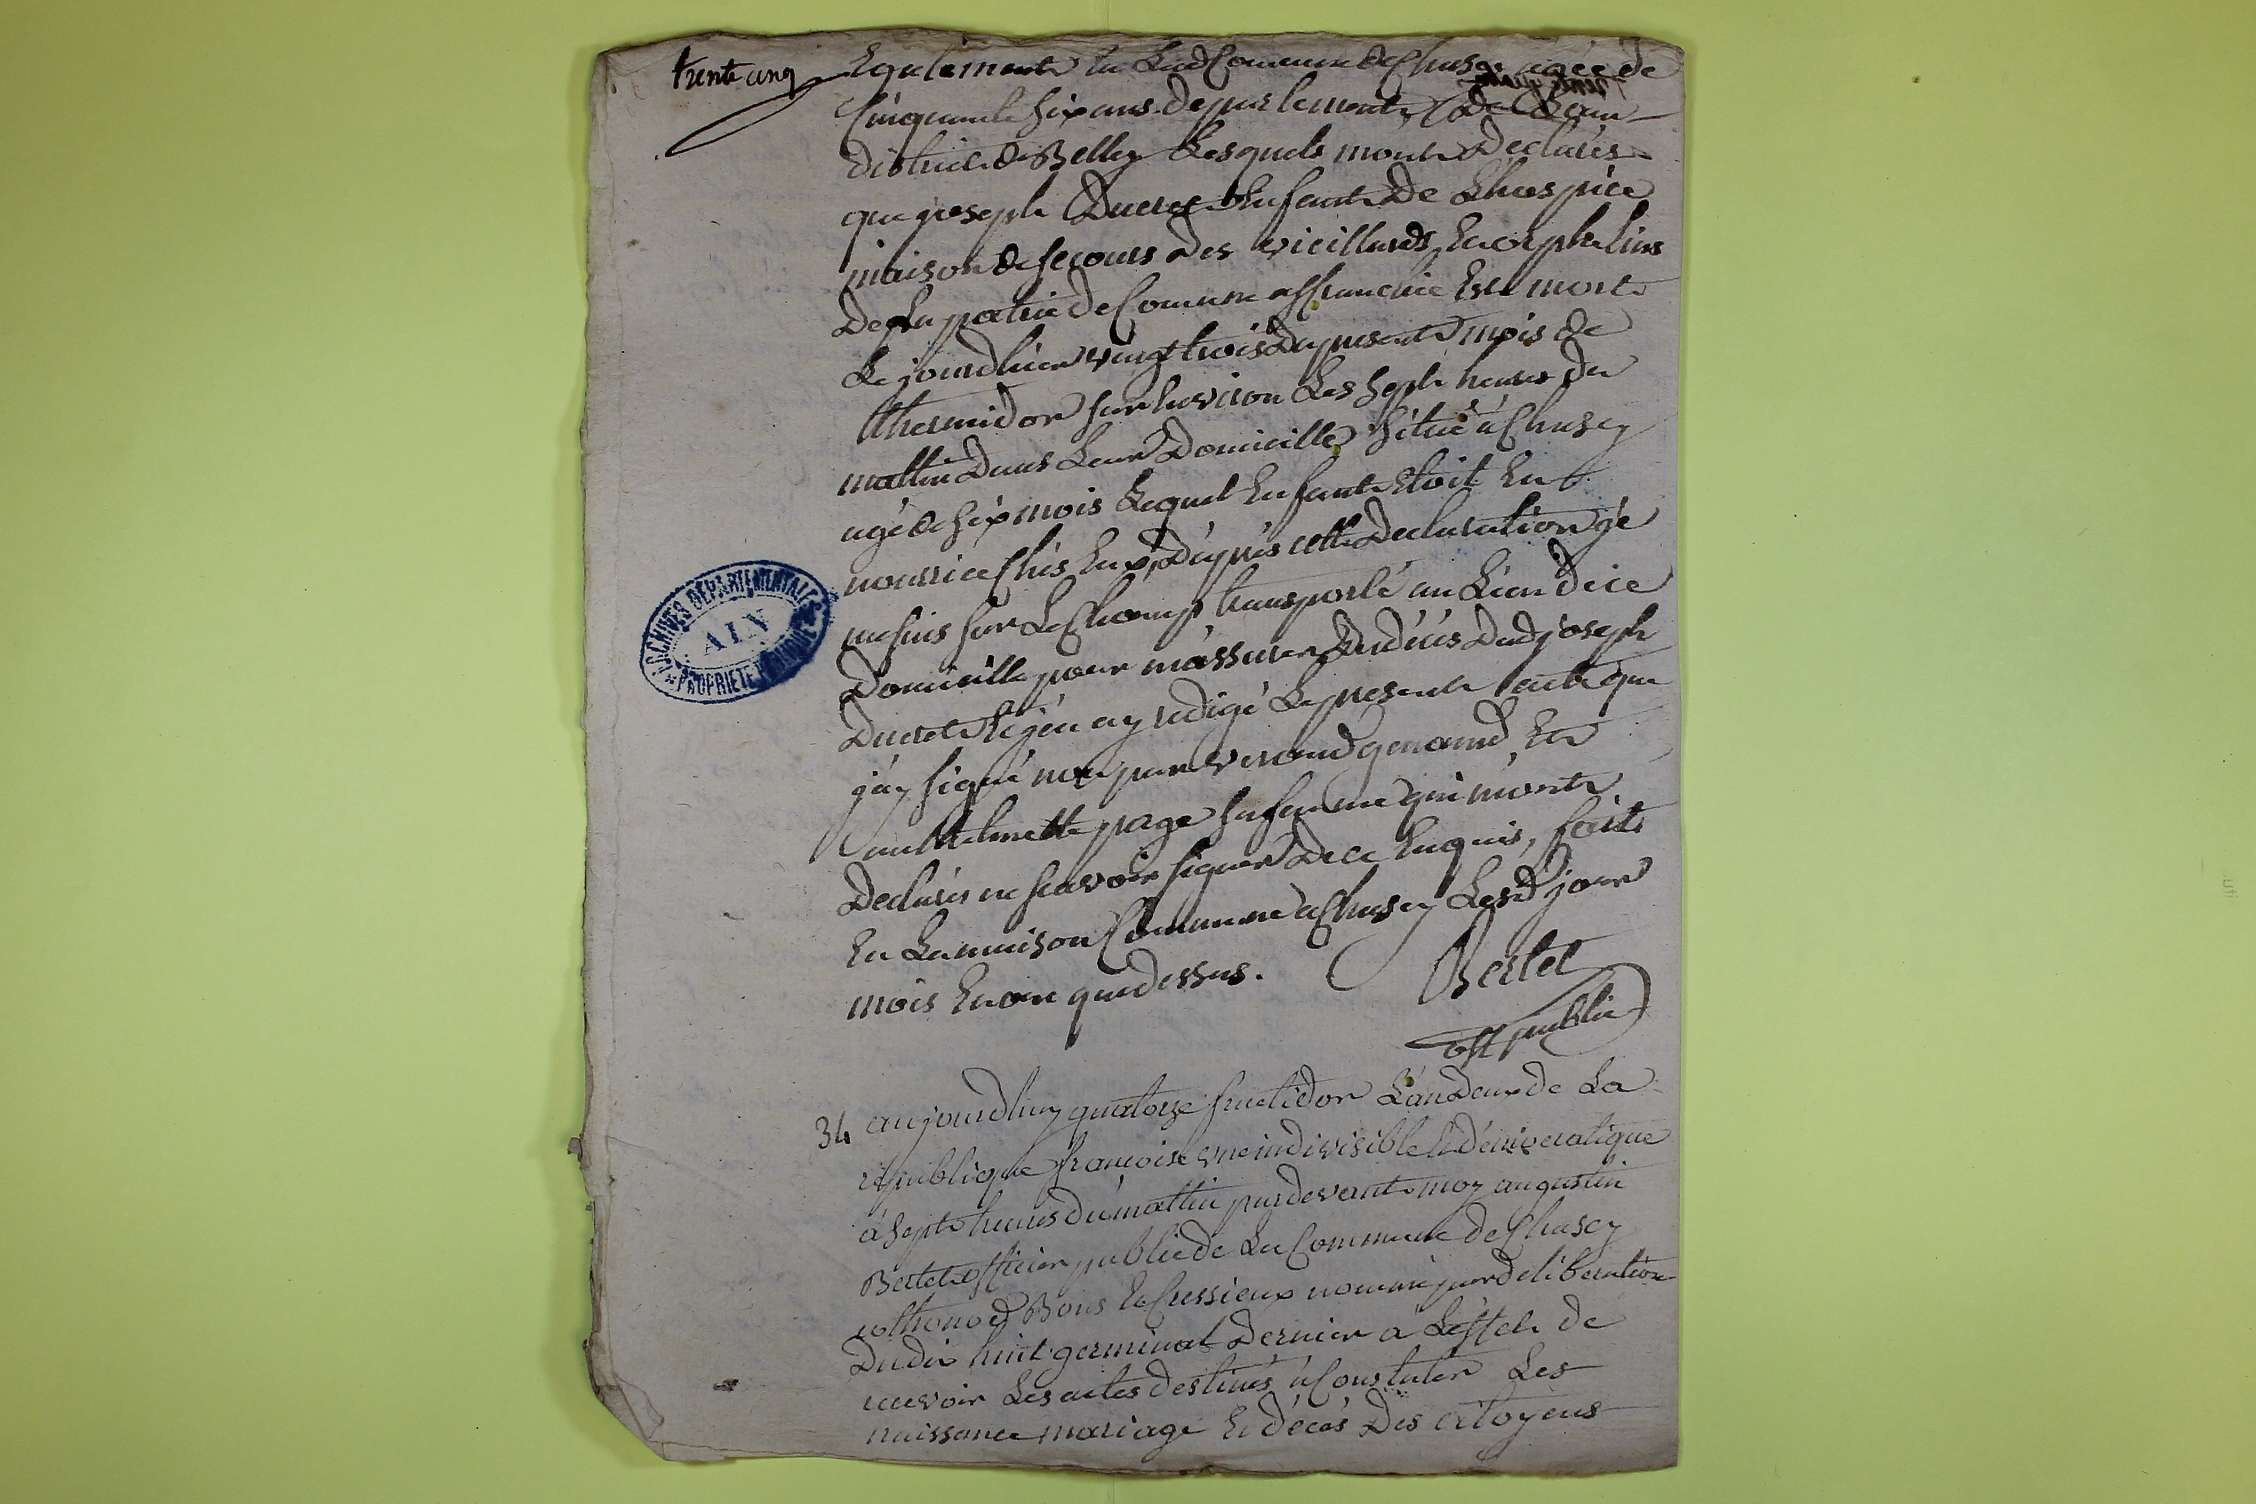 trente cinq
Egalement en Lad Commune de Chasey agée de
Cinquante six ans departement de Lain
district de Belley Lesquels mont Declarés
que joseph Ducret Enfant De Lhospice
maison de secours des vieillards, En orphelins
De la patrie de Comune affranchie Est mort
Le jourdhier vingt trois du present mois de
thermidor sur Environ Les sept heures du
mattin Dans Leur Domicille situé a Chasey
agé de six mois Lequel Enfant Etoit En
nourrice Chés Eux, D'apprés cette Declaration je
me suis sur Le Champ transporté au Lieu dice
Domicille pour m'assurer Du décés Dud joseph
Ducret Et j'en ay redigé Le present acte que
j'ay signé non par
anthelmette page sa femme qui m'ont
Declarés ne scavoir signer De ce Enquis, fait
En La maison Commune a Chasey Lesd jour
mois En an que dessus.
Bertet
off public
34
aujourdhuy quatorze fructidor L'an Deux de La
republique françoise une indivisible Et démocratique
à sept heures du mattin pardevant moy augustin
Bertet officier public de La Commune de Chasey
Cothonod Bons Et Cressieux nommé par deliberation
Du dix huit germinal Dernier à L'effet de
recevoir Les actes destinés à Constater Les
naissance mariage Et décés Des citoyens
ARCHIVES DÉPARTEMENTALES
AIN
PROPRIÉTÉ PUBLIQUE